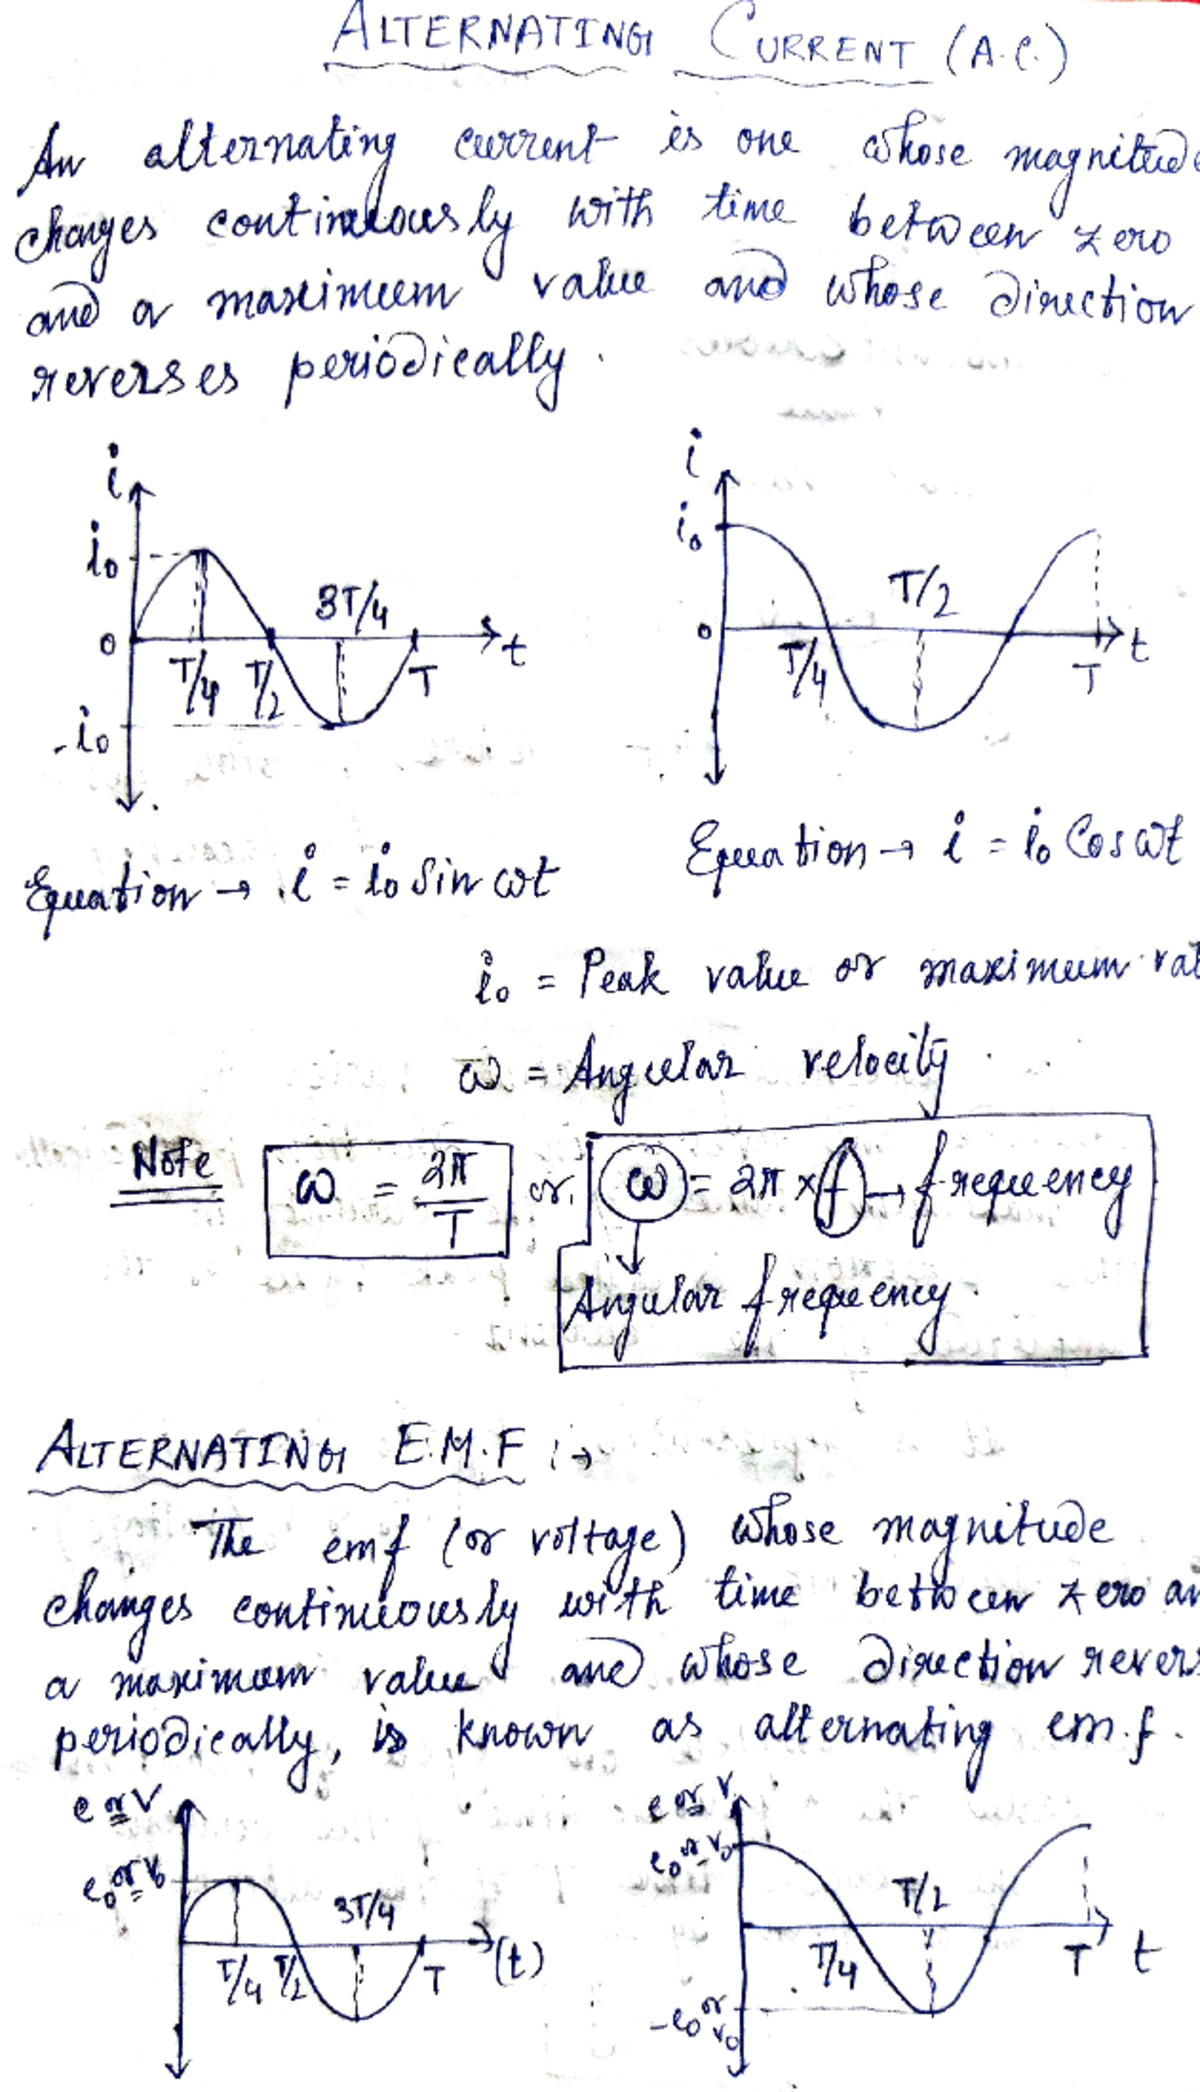 ALTERNATING CURRENT (A.C.)
An alternating current is one whose magnitude
changes continuously with time between zero
and a maximum value and whose direction
reverses periodically.
i
i₀
0
-i₀
T/4
T/2
3T/4
T
t
i
i₀
0
T/4
T/2
T
t
Equation → i = i₀ Sin ωt
Equation → i = i₀ Cos ωt
i₀ = Peak value or maximum val
ω = Angular velocity
Note
ω = 2π/T or ω = 2π × f → frequency
Angular frequency.
ALTERNATING E.M.F :→
The emf (or voltage) whose magnitude
changes continuously with time between zero an
a maximum value and whose direction revers
periodically, is known as alternating em.f.
e or V
e₀ or V₀
T/4
T/2
3T/4
T
(t)
e or V
e₀ or V₀
-e₀ or V₀
T/4
T/2
T
t